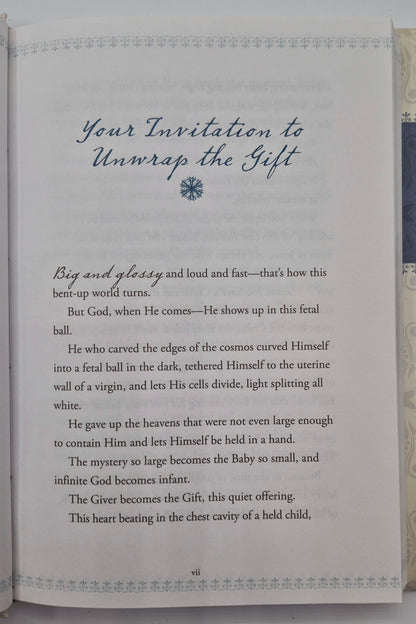 Your Invitation to
Unwrap the Gift
Big and glossy and loud and fast—that's how this
bent-up world turns.
But God, when He comes—He shows up in this fetal
ball.
He who carved the edges of the cosmos curved Himself
into a fetal ball in the dark, tethered Himself to the uterine
wall of a virgin, and lets His cells divide, light splitting all
white.
He gave up the heavens that were not even large enough
to contain Him and lets Himself be held in a hand.
The mystery so large becomes the Baby so small, and
infinite God becomes infant.
The Giver becomes the Gift, this quiet offering.
This heart beating in the chest cavity of a held child,
vii